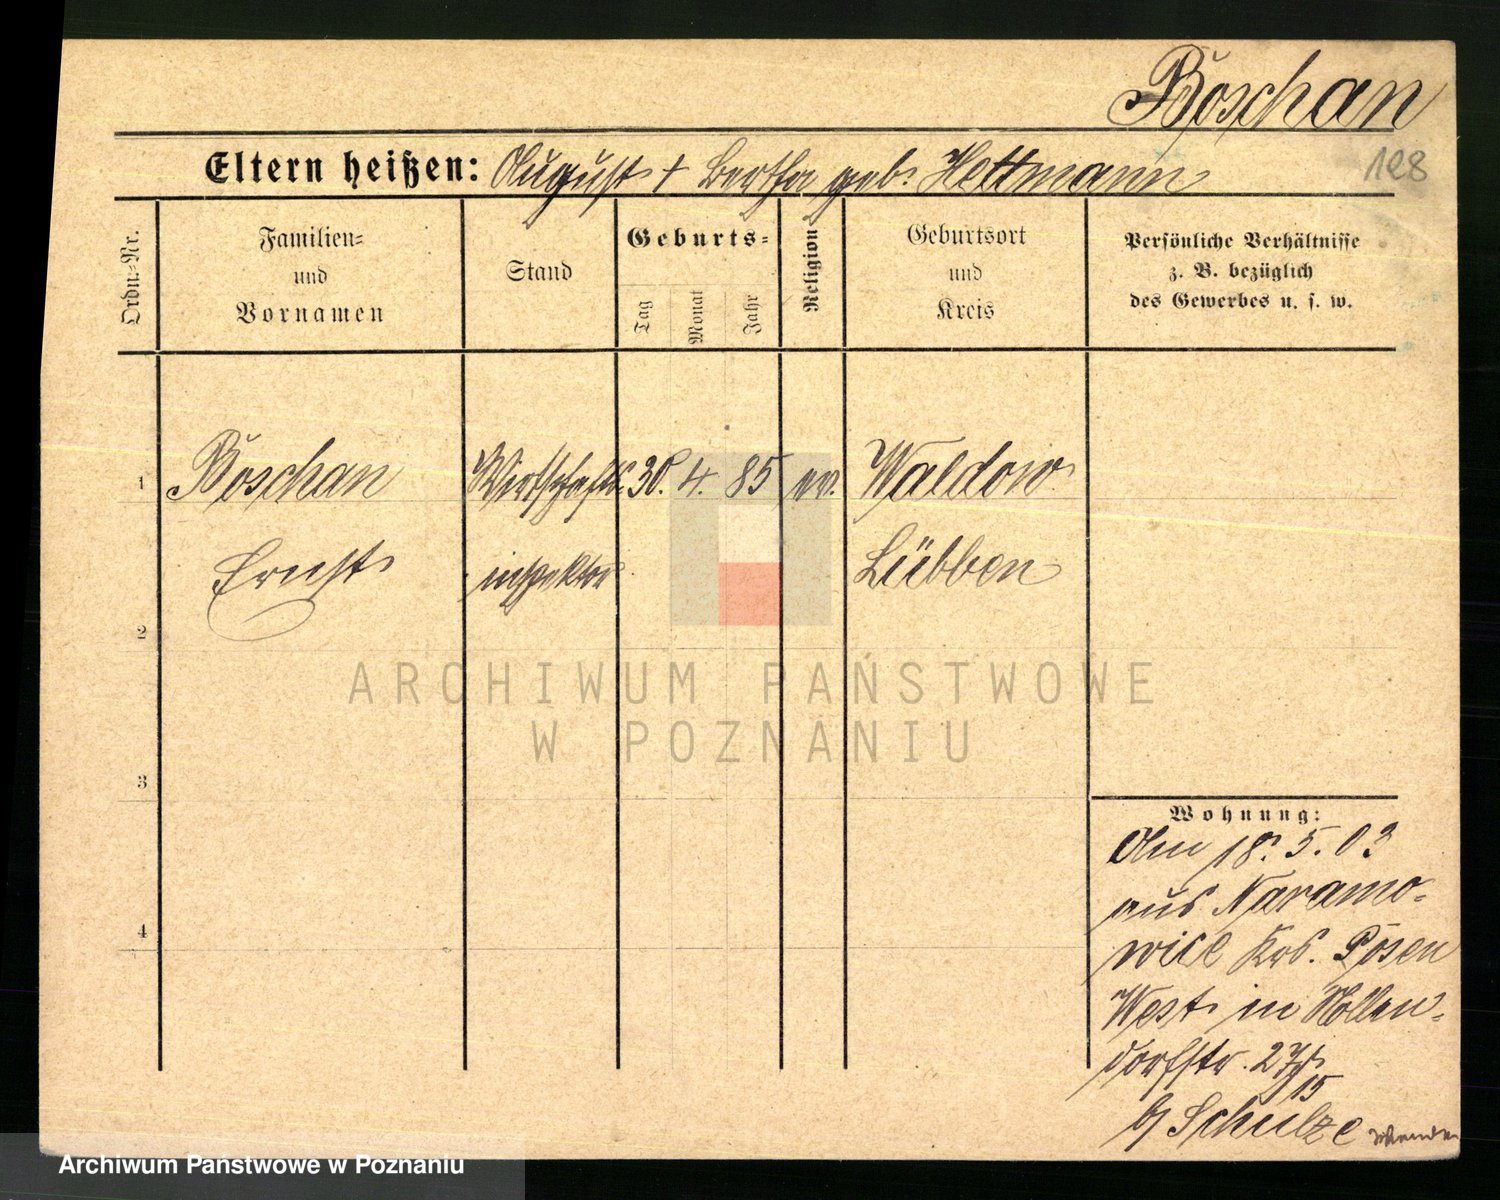 Boschan
Eltern heißen: August + Bertha geb. Hettmann
128
Ordn.-Nr.
Familien-
und
Vornamen
Stand
Geburts-
Tag
Monat
Jahr
Religion
Geburtsort
und
Kreis
Persönliche Verhältnisse
z. B. bezüglich
des Gewerbes u. s. w.
1 Boschan Wirtschafts 30. 4. 85 ev. Waldow
Ernst inspektor Lübben
2
ARCHIWUM PAŃSTWOWE
W POZNANIU
3
Wohnung:
Am 18. 5. 03
aus Naramo-
wice Krs. Posen
West in Nollen-
dorfstr. 27
15
b/ Schulze
4
Archiwum Państwowe w Poznaniu